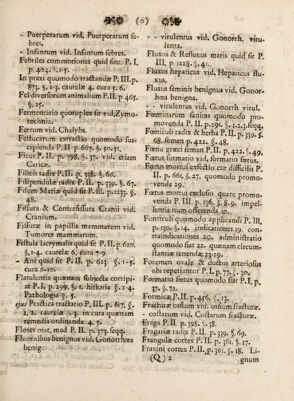 (o)
- - Puerperarum vid. Puerperarum fe-
bres.
- - Infantum vid. Infantum febres.
Febriles commotiones quid sint. P. I.
p. 402. §. 1-5.
In praxi quomodo tractandæ P. III. p.
871. §. 1-3. cautelæ 4. cura 5. 6.
Fel diversorum animalium P. II. p. 465.
§. 25.
Fermentatio quotuplex sit vid. Zymo-
technia.
Ferrum vid. Chalybs.
Festucarum correctio quomodo sus-
cipienda P. II. p. 667. §. 50. 51.
Ficus P. II. p. 398. §. 37. vid. etiam
Caricæ.
Filicis radix P. II. p. 338. §. 66.
Filipendulæ radix P. II. p. 339. §. 67.
Filum Mariæ quid sit P. III. p. 1235.
§. 48.
Fissura & Contrafissura Cranii vid.
Cranium.
Fissuræ in papillis mammarum vid.
Tumores mammarum.
Fistula lacrymalis quid sit P. II. p. 620.
§. 1-4. cautelæ 6. cura 7-9.
- Ani quid sit P. II. p. 623. §. 1-5.
cura 6-10.
Flatulentia quænam subjecta corripi-
at P. I. p. 299. §. 1. historia §. 2-4.
Pathologia §. 5.
ejus Practica tractatio P. III. p. 667. §.
1, 2. cautelæ 3. in cura quantam
remedia ordinanda 4. 5.
Flores musc. med. P. II. p. 373. seqq.
Fluor albus benignus vid. Gonorrhœa
benig.
- - virulentus vid. Gonorrh. viru-
lenta.
Fluxus & Refluxus maris quid sit P.
III. p. 1228. §. 41.
Fluxus hepaticus vid. Hepaticus flu-
xus.
Fluxus seminis benignus vid. Gonor-
rhœa benigna.
- - virulentus vid. Gonorrh. virul.
Fœminarum sanitas quomodo pro-
movenda P. II. p. 291. §. 1. 2. 3. seqq.
Fœniculi radix & herba P. II. p. 339. §.
68. semen p. 422. §. 48.
Fœnu græci semen P. II. p. 422. §. 49.
Fœtus formatio vid. formatio fœtus.
Fœtus mortui exsectio cur difficilis P.
II. p. 661. §. 27. quomodo promo-
venda 29.
Fœtus mortui exclusio quare promo-
venda P. III. p. 136. §. 8. 9. impel-
lentia num offerenda 10.
Fonticuli quomodo applicandi P. III,
p. 130. §. 14. indicationes 19. con-
traindicationes 20. administratio
quomodo fiat 22. quænam circum-
stantiæ attendendæ 23-39.
Foramen ovale & ductus arteriosus
ubi reperiantur P. I. p. 77. §. 30.
Formatio fœtus quomodo fiat P. I. p.
37. §. 72.
Formicæ P. II. p. 456. §. 13.
Fractura ossium vid. ossium fracturæ.
- costarum vid. Costarum fracturæ.
Fraga P. II. p. 398. §. 38.
Fragariæ radix P. II. p. 339. §. 69.
Frangulæ cortex P. II. p. 361. §. 17.
Fraxini cortex P. II. p. 361. §. 18. Li-
(Q) 2
gnum